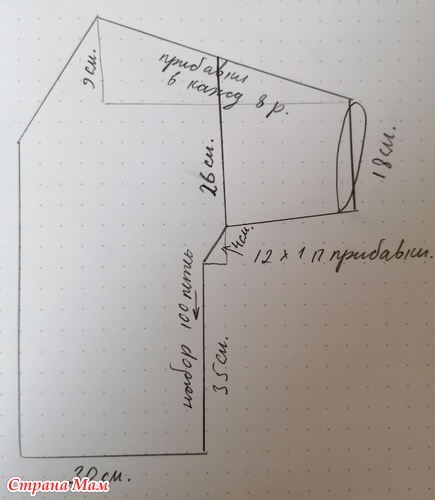 9 см.
прибавки
в кажд 8 р.
26 см.
18 см.
4см.
12 х 1 п прибавки.
набор 100 петель
35 см.
30 см.
Страна Мам